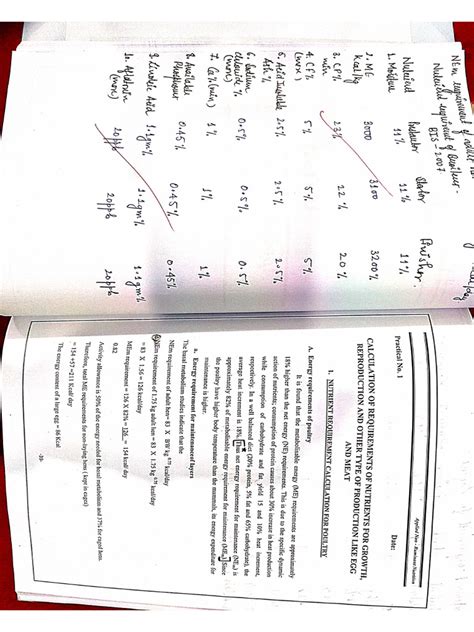 NEm requirement of adult
Nutrient requirement of Broiler -
BIS - 2007
Nutrient Prestarter Starter Finisher
1. Moisture 11% 11% 11%
2. ME 3000 3100 3200
kcal/kg
3. CP% 23% 22% 20%
min
4. CF% 5% 5% 5%
(max)
5. Acid Insoluble 2.5% 2.5% 2.5%
Ash %
6. Sodium 0.5% 0.5% 0.5%
chloride %
(max)
7. Ca % (min) 1% 1% 1%
8. Available 0.45% 0.45% 0.45%
Phosphorus
9. Linoleic Acid 1.1gm% 1.1gm% 1.1gm%
10. Aflatoxin 20ppb 20ppb 20ppb
(max)
Applied Non - Ruminant Nutrition
Practical No. 1 Date:
CALCULATION OF REQUIREMENTS OF NUTRIENTS FOR GROWTH,
REPRODUCTION AND OTHER TYPE OF PRODUCTION LIKE EGG
AND MEAT
1. NUTRIENT REQUIREMENT CALCULATION FOR POULTRY
A. Energy requirements of poultry
It is found that the metabolisable energy (ME) requirements are approximately
18% higher than the net energy (NE) requirements. This is due to the specific dynamic
action of nutrients consumption of protein causes about 30% increase in heat production
while consumption of carbohydrate and fat yield 15 and 10% heat increment,
respectively. In a well balanced diet (20% protein, 5% fat and 65% carbohydrate), the
average heat increment is 18%. Thus net energy requirement for maintenance (NEm) is
approximately 82% of metabolisable energy requirement for maintenance (MEm). Since
the poultry have higher body temperature than the mammals, its energy expenditure for
maintenance is higher.
a. Energy requirement for maintenance of layers
The basal metabolism studies indicate that the
NEm requirement of adult hen = 83 X BW kg 0.75 kcal/day
NEm requirement of 1.75 kg adult hen = 83 X 1.75 kg 0.75 kcal/day
= 83 X 1.56 = 126 kcal/day
MEm requirement = 126 X 82% = 126 = 154 kcal/day
0.82
Activity allowance is 50% of the energy needed for basal metabolism and 37% for caged hens.
Therefore, total ME requirements for non-laying hens (kept in cages)
= 154 + 57 = 211 Kcal/day
The energy content of a large egg = 86 Kcal
-10-